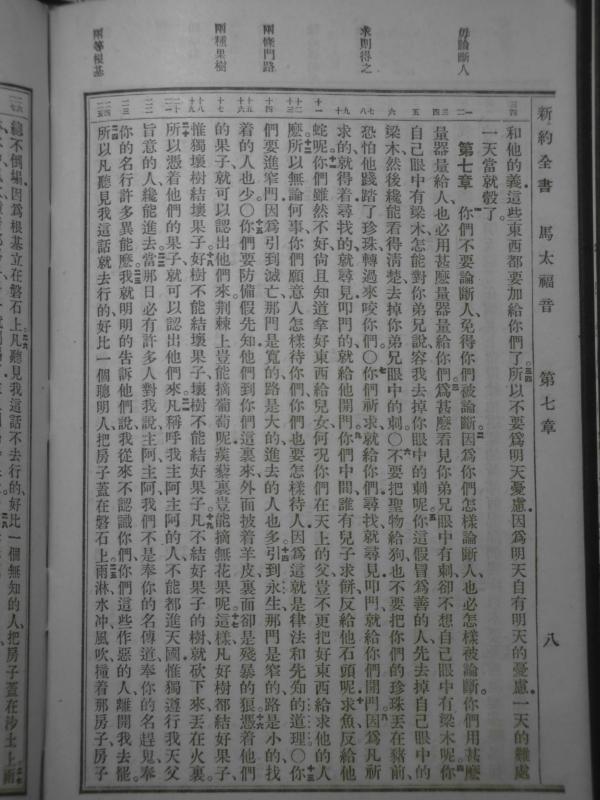 新約全書 馬太福音 第七章 八
毋論斷人
求則得之
兩條門路
兩種果樹
兩等根基
和他的義這些東西都要加給你們了所以不要爲明天憂慮因爲明天自有明天的憂慮一天的難處
一天當就彀了
第七章 你們不要論斷人免得你們被論斷因爲你們怎樣論斷人也必怎樣被論斷你們用甚麽
量器量給人也必用甚麽量器量給你們爲甚麽看見你弟兄眼中有刺卻不想自己眼中有梁木呢你
自己眼中有梁木怎能對你弟兄說容我去掉你眼中的刺呢你這假冒爲善的人先去掉自己眼中的
梁木然後纔能看得清楚去掉你弟兄眼中的刺〇不要把聖物給狗也不要把你們的珍珠丟在豬前
恐怕他踐踏了珍珠轉過來咬你們〇你們祈求就給你們尋找就尋見叩門就給你們開門因爲凡祈
求的就得着尋找的就尋見叩門的就給他開門你們中間誰有兒子求餅反給他石頭呢求魚反給他
蛇呢你們雖然不好尚且知道拿好東西給兒女何況你們在天上的父豈不更把好東西給求他的人
麽所以無論何事你們願意人怎樣待你們你們也要怎樣待人因爲這就是律法和先知的道理〇你
們要進窄門因爲引到滅亡那門是寬的路是大的進去的人也多引到永生那門是窄的路是小的找
着的人也少〇你們要防備假先知他們到你們這裏來外面披着羊皮裏面卻是殘暴的狼憑着他們
的果子就可以認出他們來荆棘上豈能摘葡萄呢蒺藜裏豈能摘無花果呢這樣凡好樹都結好果子
惟獨壞樹結壞果子好樹不能結壞果子壞樹不能結好果子凡不結好果子的樹就砍下來丟在火裏
所以憑着他們的果子就可以認出他們來凡稱呼我主阿主阿的人不能都進天國惟獨遵行我天父
旨意的人纔能進去當那日必有許多人對我說主阿主阿我們不是奉你的名傳道奉你的名趕鬼奉
你的名行許多異能麽我就明明的告訴他們說我從來不認識你們你們這些作惡的人離開我去罷
所以凡聽見我這話就去行的好比一個聰明人把房子蓋在磐石上雨淋水冲風吹撞着那房子房子
總不倒塌因爲根基立在磐石上凡聽見我這話不去行的好比一個無知的人把房子蓋在沙土上雨